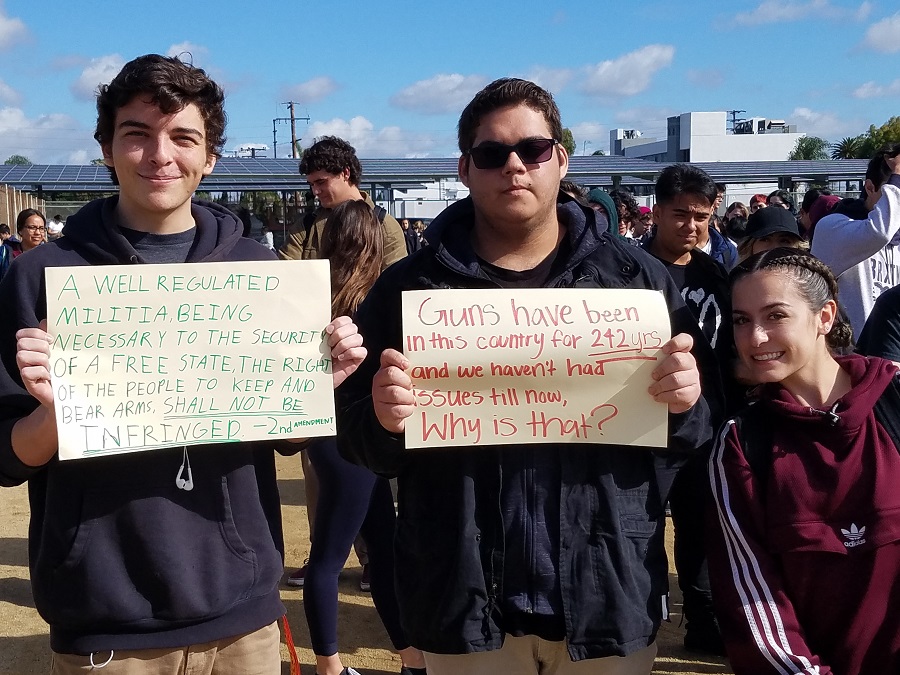 A WELL REGULATED
MILITIA, BEING
NECESSARY TO THE SECURITY
OF A FREE STATE, THE RIGHT
OF THE PEOPLE TO KEEP AND
BEAR ARMS, SHALL NOT BE
INFRINGED. -2nd AMENDMENT
Guns have been
in this country for 242 yrs.
and we haven't had
issues till now,
Why is that?
adidas